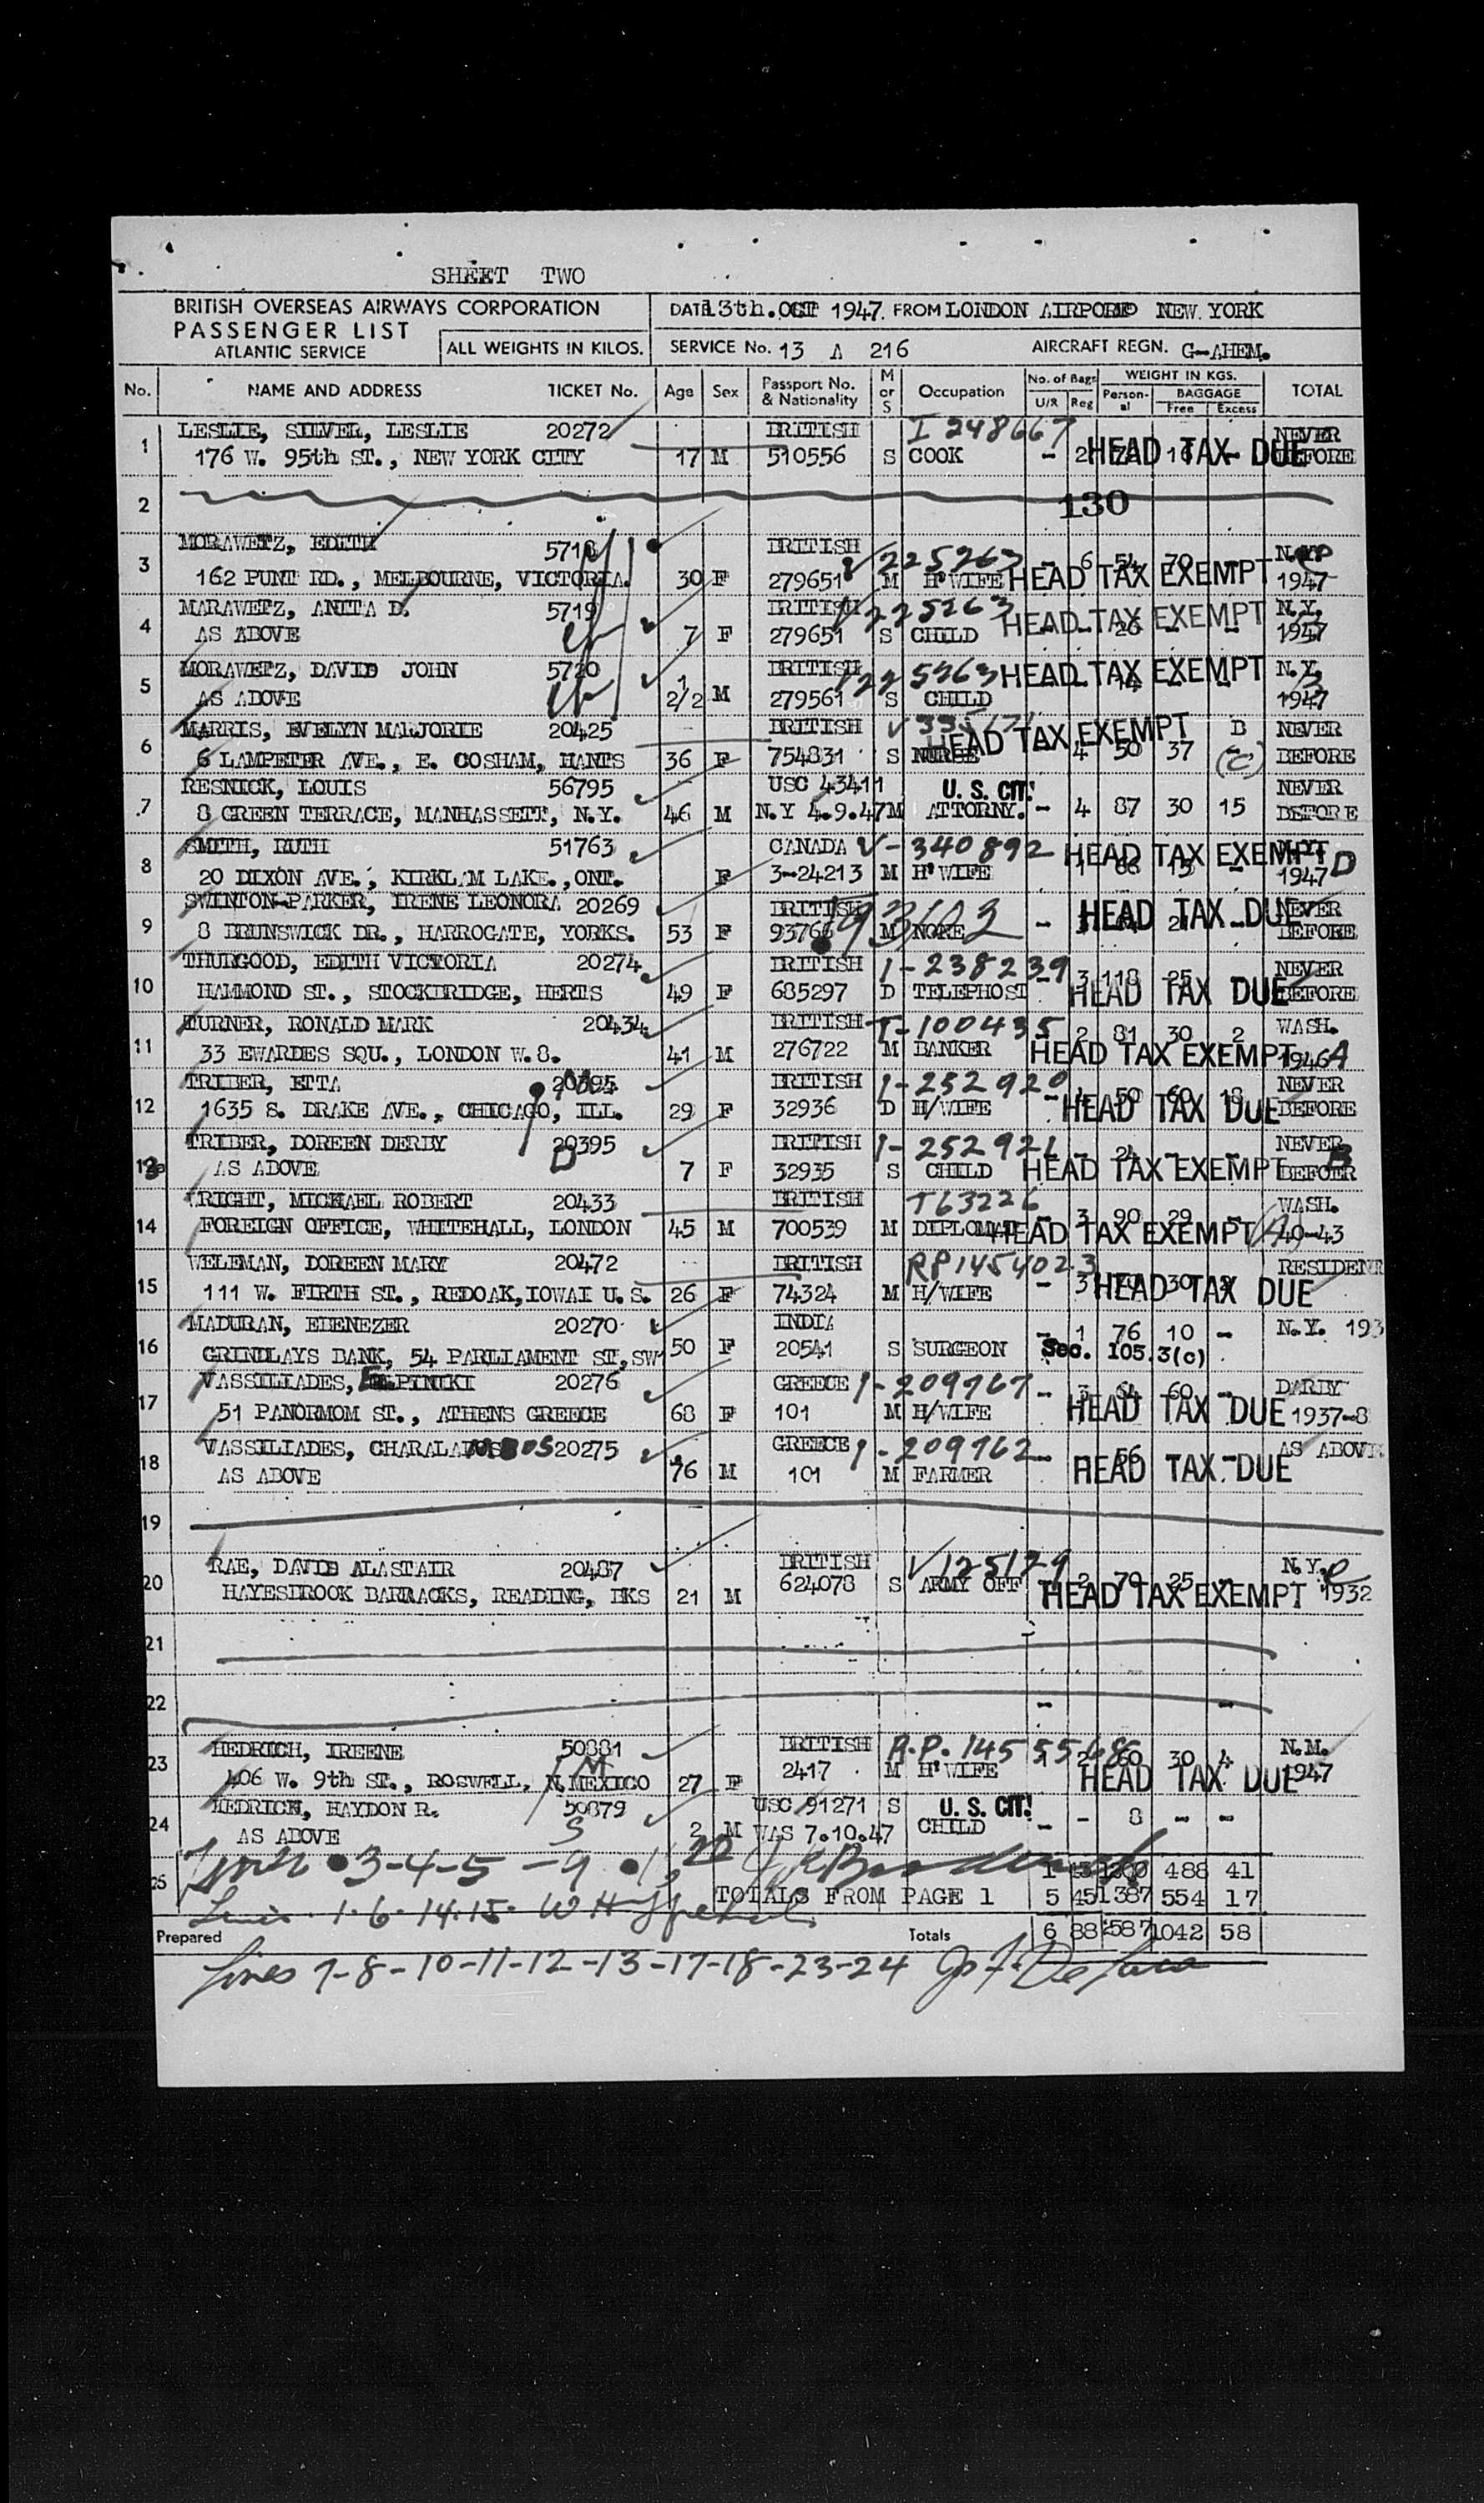 SHEET TWO
BRITISH OVERSEAS AIRWAYS CORPORATION
PASSENGER LIST
ATLANTIC SERVICE
ALL WEIGHTS IN KILOS.
DATE 13th. OCT 1947. FROM LONDON AIRPORT NEW YORK
SERVICE No. 13 A 216 AIRCRAFT REGN. G-AHEM.
No. NAME AND ADDRESS TICKET No. Age Sex Passport No. & Nationality M or S Occupation No. of Bags U/R Reg WEIGHT IN KGS. Personal BAGGAGE Free Excess TOTAL
1 LESLIE, SILVER, LESLIE 20272 BRITISH I 248667 NEVER
176 W. 95th ST., NEW YORK CITY 17 M 510556 S COOK - 2 HEAD TAX DUE BEFORE
2 130
3 MORAWETZ, EDITH 5718 BRITISH V225263 - 6 54 70 N.Y.
162 PUNT RD., MELBOURNE, VICTORIA. 30 F 279651 M H'WIFE HEAD TAX EXEMPT 1947
4 MARAWETZ, ANITA D. 5719 BRITISH V225263 N.Y.
AS ABOVE 7 F 279651 S CHILD HEAD TAX EXEMPT 1947
5 MORAWETZ, DAVID JOHN 5720 BRITISH V225263 HEAD TAX EXEMPT N.Y.
AS ABOVE 2 1/2 M 279561 S CHILD 1947
6 MARRIS, EVELYN MARJORIE 20425 BRITISH HEAD TAX EXEMPT B NEVER
6 LAMPETER AVE., E. COSHAM, HANTS 36 F 754831 S NURSE - 4 50 37 (C) BEFORE
7 RESNICK, LOUIS 56795 USC 43411 U. S. CIT. NEVER
8 GREEN TERRACE, MANHASSETT, N.Y. 46 M N.Y 4.9.47 M ATTORNY. - 4 87 30 15 BEFORE
8 SMITH, RUTH 51763 CANADA V-340892 HEAD TAX EXEMPT
20 DIXON AVE., KIRKLAM LAKE., ONT. F 3-24213 M H'WIFE 1 66 15 - 1947 D
9 SWINTON-PARKER, IRENE LEONORA 20269 BRITISH HEAD TAX DUE NEVER
8 BRUNSWICK DR., HARROGATE, YORKS. 53 F 93766 M NONE - BEFORE
10 THURGOOD, EDITH VICTORIA 20274 BRITISH I-238239 3 118 25 NEVER
HAMMOND ST., STOCKBRIDGE, HERTS 49 F 685297 D TELEPHOST - HEAD TAX DUE BEFORE
11 TURNER, RONALD MARK 20434 BRITISH T-100435 2 81 30 2 WASH.
33 EWARDES SQU., LONDON W.8. 41 M 276722 M BANKER HEAD TAX EXEMPT 1946 A
12 TRIBER, ETTA 20395 BRITISH I-252920 NEVER
1635 S. DRAKE AVE., CHICAGO, ILL. 29 F 32936 D H/WIFE - 50 60 18 HEAD TAX DUE BEFORE
13 TRIBER, DOREEN DERBY 20395 BRITISH I-252921 - 24 - - NEVER
AS ABOVE 7 F 32935 S CHILD HEAD TAX EXEMPT BEFOER B
14 RIGHT, MICHAEL ROBERT 20433 BRITISH T63226 3 90 29 - WASH.
FOREIGN OFFICE, WHITEHALL, LONDON 45 M 700539 M DIPLOMAT HEAD TAX EXEMPT (A) 40-43
15 WELEMAN, DOREEN MARY 20472 BRITISH RP1454023 RESIDENT
111 W. FIRTH ST., REDOAK, IOWAI U.S. 26 F 74324 M H/WIFE - 3 HEAD TAX DUE
16 MADURAN, EBENEZER 20270 INDIA - 1 76 10 - N.Y. 193
GRINDLAYS BANK, 54 PARLIAMENT ST, SW 50 F 20541 S SURGEON Sec. 105.3(c)
17 VASSILIADES, ELPINIKI 20276 GREECE I-209767 - 3 64 60 - DARBY
51 PANORMOM ST., ATHENS GREECE 68 F 101 M H/WIFE HEAD TAX DUE 1937-8
18 VASSILIADES, CHARALAMBOS 20275 GREECE I-209762 - 56 AS ABOVE
AS ABOVE 76 M 101 M FARMER HEAD TAX DUE
19
20 RAE, DAVID ALASTAIR 20487 BRITISH V125129 N.Y.
HAYESBROOK BARRACKS, READING, BKS 21 M 624078 S ARMY OFF 2 70 25 - HEAD TAX EXEMPT 1932
21
22 - -
23 HEDRICH, IREENE 50881 BRITISH R.P. 1455568 1 2 60 30 4 N.M.
406 W. 9th ST., ROSWELL, N.MEXICO 27 F 2417 M H'WIFE HEAD TAX DUE 1947
24 HEDRICH, HAYDON R. 50879 USC 91271 S U. S. CIT.
AS ABOVE 2 M WAS 7.10.47 CHILD - - 8 - -
25 3-4-5-9 20 1 43 1200 488 41
TOTALS FROM PAGE 1 5 45 1387 554 17
1-6-14-15
Prepared Totals 6 88 2587 1042 58
Lines 7-8-10-11-12-13-17-18-23-24